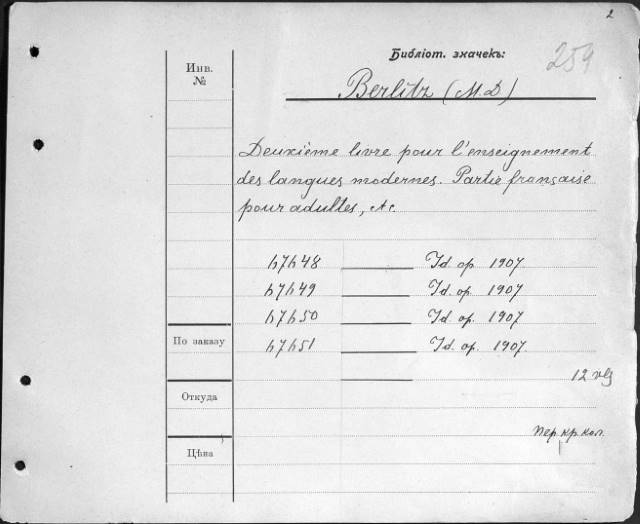 2
Библіот. значекъ:
259
Инв.
№
Berlitz (M.D)
Deuxième livre pour l'enseignement
des langues modernes. Partie française
pour adultes, etc.
47648 Id. op. 1907.
47649 Id. op. 1907
47650 Id. op. 1907
47651 Id. op. 1907.
По заказу
12
Откуда
пер кр кол.
Цѣна